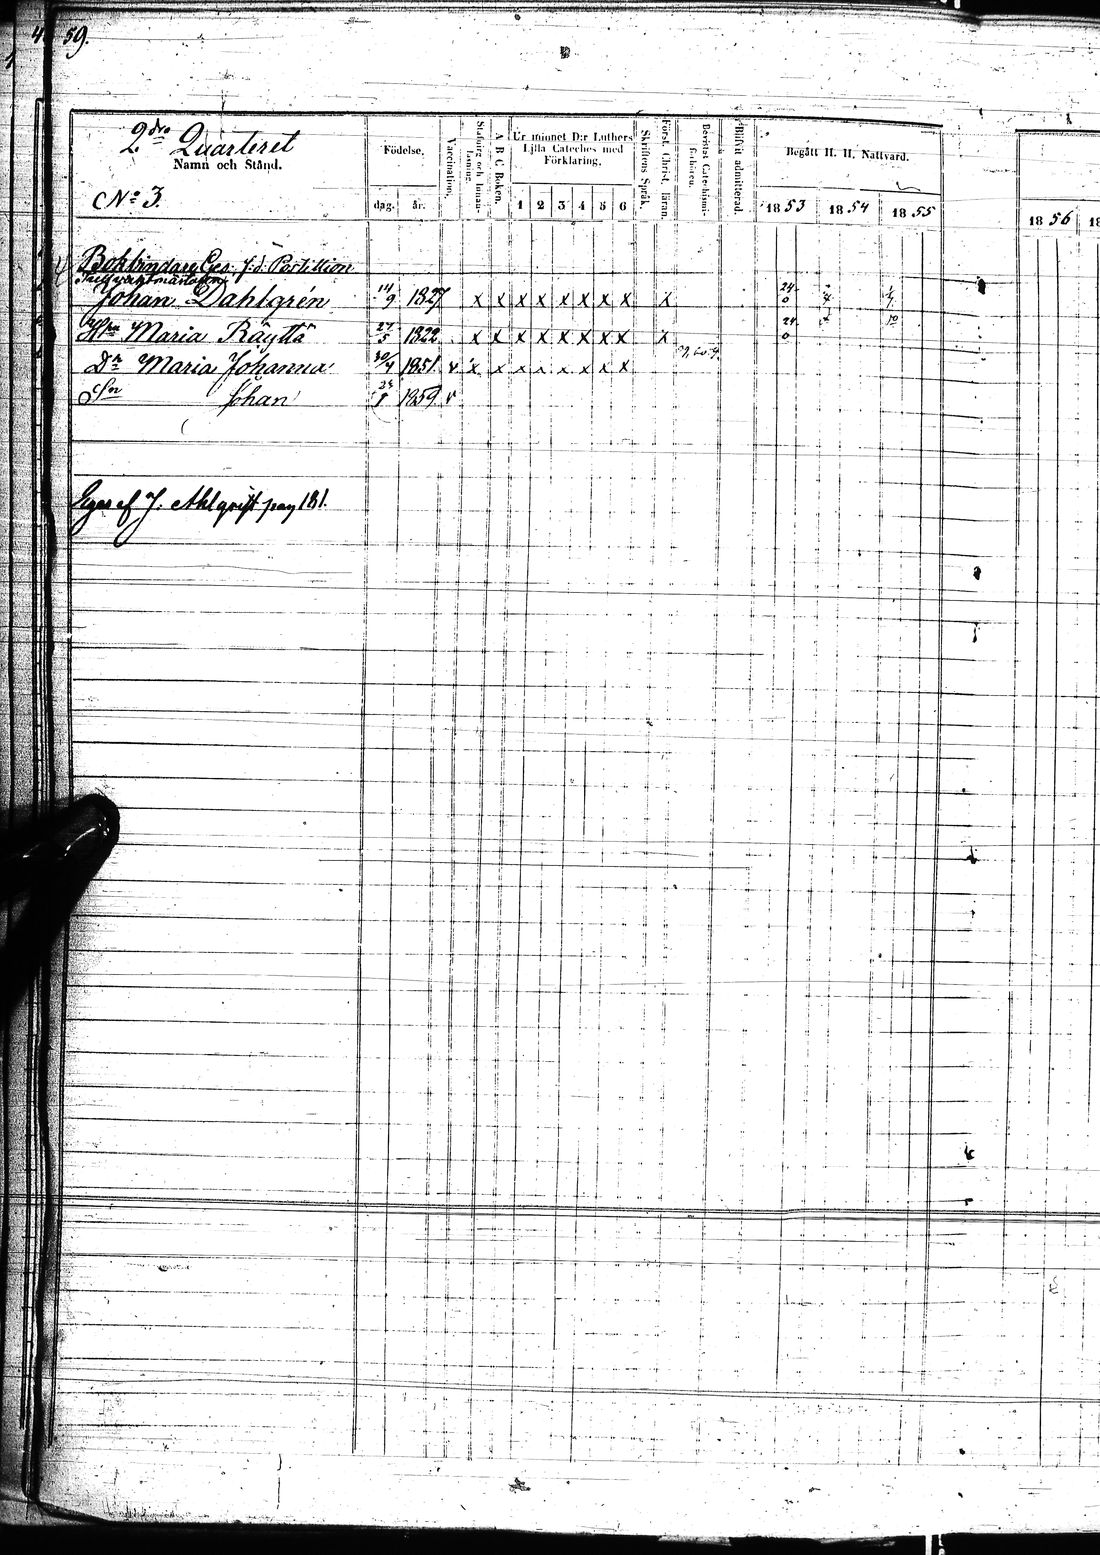 59.
2dra Quarteret
Namn och Stånd.
No 3.
Födelse.
dag. år.
Vaccination.
A B C Boken.
Ur minnet D:r Luthers
Lilla Cateches med
Förklaring.
1 2 3 4 5 6
Skriftens Språk.
Först. Christ. läran.
Bevistat Catechismi-
förhören.
Blifvit admitterad.
Begått H. H. Nattvard.
1853 1854 1855
1856 18
Bokbindare Ges. f.d. Postillion
Johan Dahlgrén 14/9 1827 x x x x x x x x x 24
Hu Maria Räyttä 27/5 1822 x x x x x x x x x 24
Dr Maria Johanna 30/4 1851. v x x x x x x x x
Son Johan 1859. v
Eges af J. Ahlqvist pag 181.